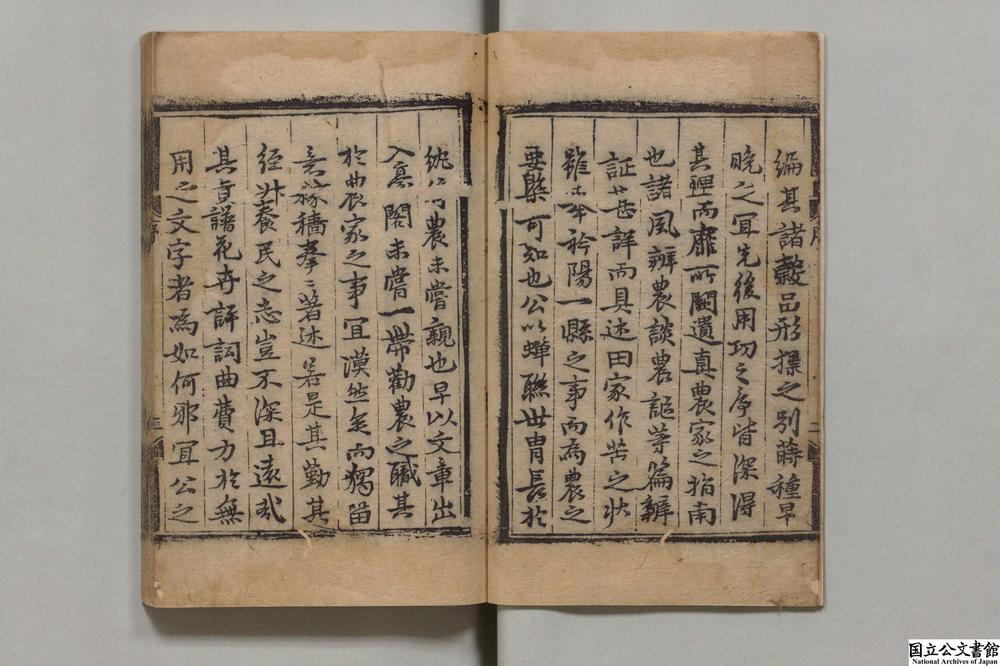 編其諸穀品形操之別蒔種早
晩之宜先後用功之序皆深得
其理而靡所闕遺真農家之指南
也諸風辨農談農謳等篇辨
証甚詳而具述田家作苦之状
雖本衿陽一縣之事而為農之
要槩可知也公以蟬聯世胄長於
紈 農未嘗親也早以文章出
入 閣未嘗一帶勸農之職其
於農家之事宜漠然矣而獨留
意稼穡拳〻著述若是其勤其
經 養民之志豈不深且遠哉
其 譜花卉評詞曲費力於無
用之文字者為如何邪冝公之
序
二
序
三
国立公文書館
National Archives of Japan